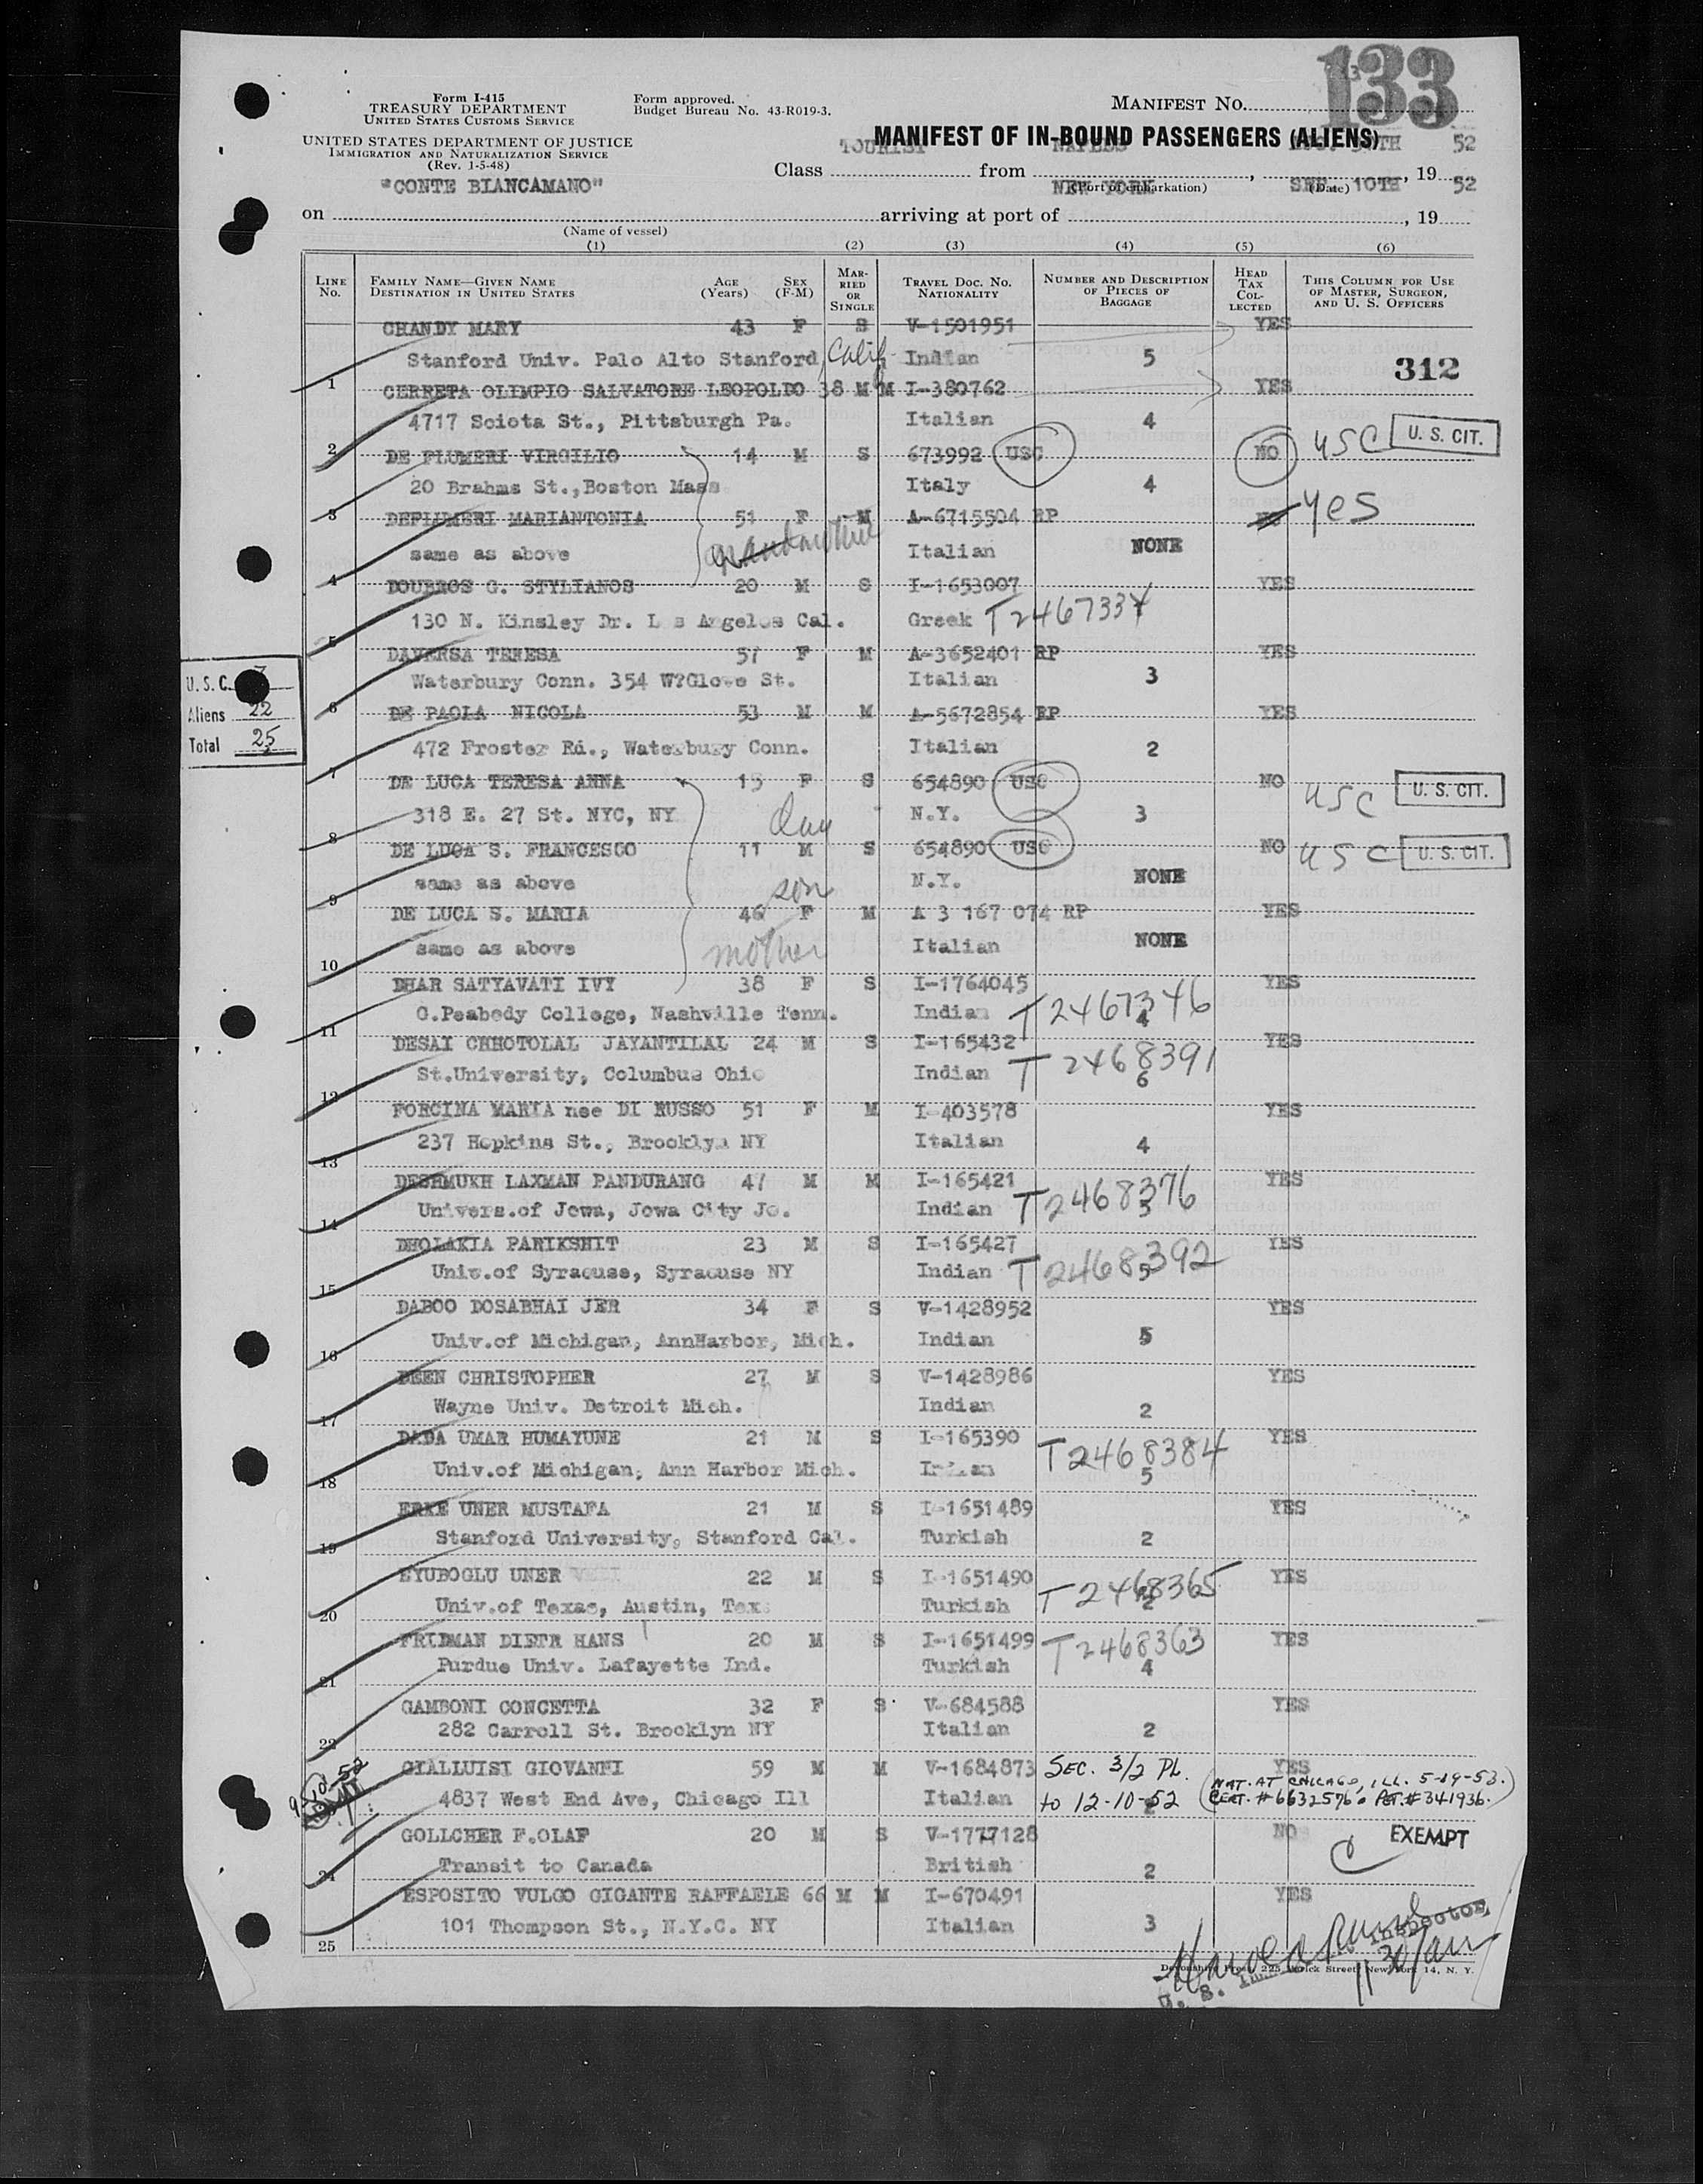 133
Form I-415
TREASURY DEPARTMENT
UNITED STATES CUSTOMS SERVICE
Form approved.
Budget Bureau No. 43-R019-3.
MANIFEST No.
UNITED STATES DEPARTMENT OF JUSTICE
IMMIGRATION AND NATURALIZATION SERVICE
(Rev. 1-5-48)
MANIFEST OF IN-BOUND PASSENGERS (ALIENS)
Class TOURIST from NAPLES (Port of embarkation), (Date), 19 52
"CONTE BIANCAMANO"
on (Name of vessel) arriving at port of NEW YORK SEP. 10TH, 19 52
(1) (2) (3) (4) (5) (6)
LINE No. FAMILY NAME—GIVEN NAME DESTINATION IN UNITED STATES AGE (Years) SEX (F-M) MARRIED OR SINGLE TRAVEL DOC. NO. NATIONALITY NUMBER AND DESCRIPTION OF PIECES OF BAGGAGE HEAD TAX COLLECTED THIS COLUMN FOR USE OF MASTER, SURGEON, AND U. S. OFFICERS
CHANDY MARY 43 F S V-1501951 YES
Stanford Univ. Palo Alto Stanford, Calif. Indian 5
312
1
CERRETA OLIMPIO SALVATORE LEOPOLDO 38 M M I-380762 YES
4717 Sciota St., Pittsburgh Pa. Italian 4
2
DE FLUMERI VIRGILIO 14 M S 673992 USC NO USC U. S. CIT.
20 Brahms St., Boston Mass. Italy 4
3
DEFLUMERI MARIANTONIA 51 F M A-6715504 RP yes
same as above grandmother Italian NONE
4
DOUBROS G. STYLIANOS 20 M S I-1653007 YES
130 N. Kinsley Dr. Los Angelos Cal. Greek T2467334
5
DAVERSA TERESA 57 F M A-3652401 RP YES
Waterbury Conn. 354 W?Glove St. Italian 3
6
DE PAOLA NICOLA 53 M M A-5672854 RP YES
472 Froster Rd., Waterbury Conn. Italian 2
U. S. C. 3
Aliens 22
Total 25
7
DE LUCA TERESA ANNA 15 F S 654890 USC NO USC U. S. CIT.
318 E. 27 St. NYC, NY dau N.Y. 3
8
DE LUCA S. FRANCESCO 11 M S 654890 USC NO USC U. S. CIT.
same as above son N.Y. NONE
9
DE LUCA S. MARIA 46 F M A 3 167 074 RP YES
same as above mother Italian NONE
10
DHAR SATYAVATI IVY 38 F S I-1764045 YES
G.Peabody College, Nashville Tenn. Indian T2467346 4
11
DESAI CHHOTOLAL JAYANTILAL 24 M S I-165432 YES
St.University, Columbus Ohio Indian T2468391 6
12
FORCINA MARIA nee DI RUSSO 51 F M I-403578 YES
237 Hopkins St., Brooklyn NY Italian 4
13
DESHMUKH LAXMAN PANDURANG 47 M M I-165421 YES
Univers.of Jowa, Jowa City Jo. Indian T2468376 3
14
DHOLAKIA PARIKSHIT 23 M S I-165427 YES
Univ.of Syracuse, Syracuse NY Indian T2468392 5
15
DABOO DOSABHAI JER 34 F S V-1428952 YES
Univ.of Michigan, AnnHarbor, Mich. Indian 5
16
DEEN CHRISTOPHER 27 M S V-1428986 YES
Wayne Univ. Detroit Mich. Indian 2
17
DADA UMAR HUMAYUNE 21 M S I-165390 YES
Univ.of Michigan, Ann Harbor Mich. Indian T2468384 5
18
ERKE UNER MUSTAFA 21 M S I-1651489 YES
Stanford University, Stanford Cal. Turkish 2
19
EYUBOGLU UNER 22 M S I-1651490 YES
Univ.of Texas, Austin, Tex. Turkish T2468365 2
20
FRIDMAN DIETR HANS 20 M S I-1651499 YES
Purdue Univ. Lafayette Ind. Turkish T2468363 4
21
GAMBONI CONCETTA 32 F S V-684588 YES
282 Carroll St. Brooklyn NY Italian 2
22
GIALLUISI GIOVANNI 59 M M V-1684873 SEC. 3/2 PL. YES
4837 West End Ave, Chicago Ill Italian to 12-10-52 2 (NAT. AT CHICAGO, ILL. 5-19-53. CERT. # 6632576. PET. # 341936.)
GOLLCHER F.OLAF 20 M S V-1777128 NO EXEMPT
Transit to Canada British 2
24
ESPOSITO VULGO GIGANTE RAFFAELE 66 M M I-670491 YES
101 Thompson St., N.Y.C. NY Italian 3
25
Inspector
11 30/am
Devonshire Press, 225 Varick Street, New York 14, N. Y.
U. S.